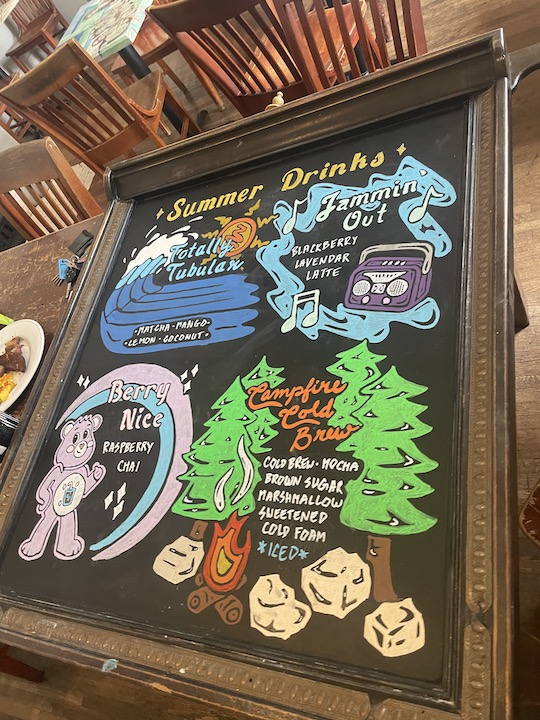 Summer Drinks
Totally
Tubular
•MATCHA•MANGO•
LEMON•COCONUT•
Jammin'
Out
BLACKBERRY
LAVENDAR
LATTE
Berry
Nice
RASPBERRY
CHAI
Campfire
Cold
Brew
COLD BREW•MOCHA
BROWN SUGAR
MARSHMALLOW
SWEETENED
COLD FOAM
*ICED*